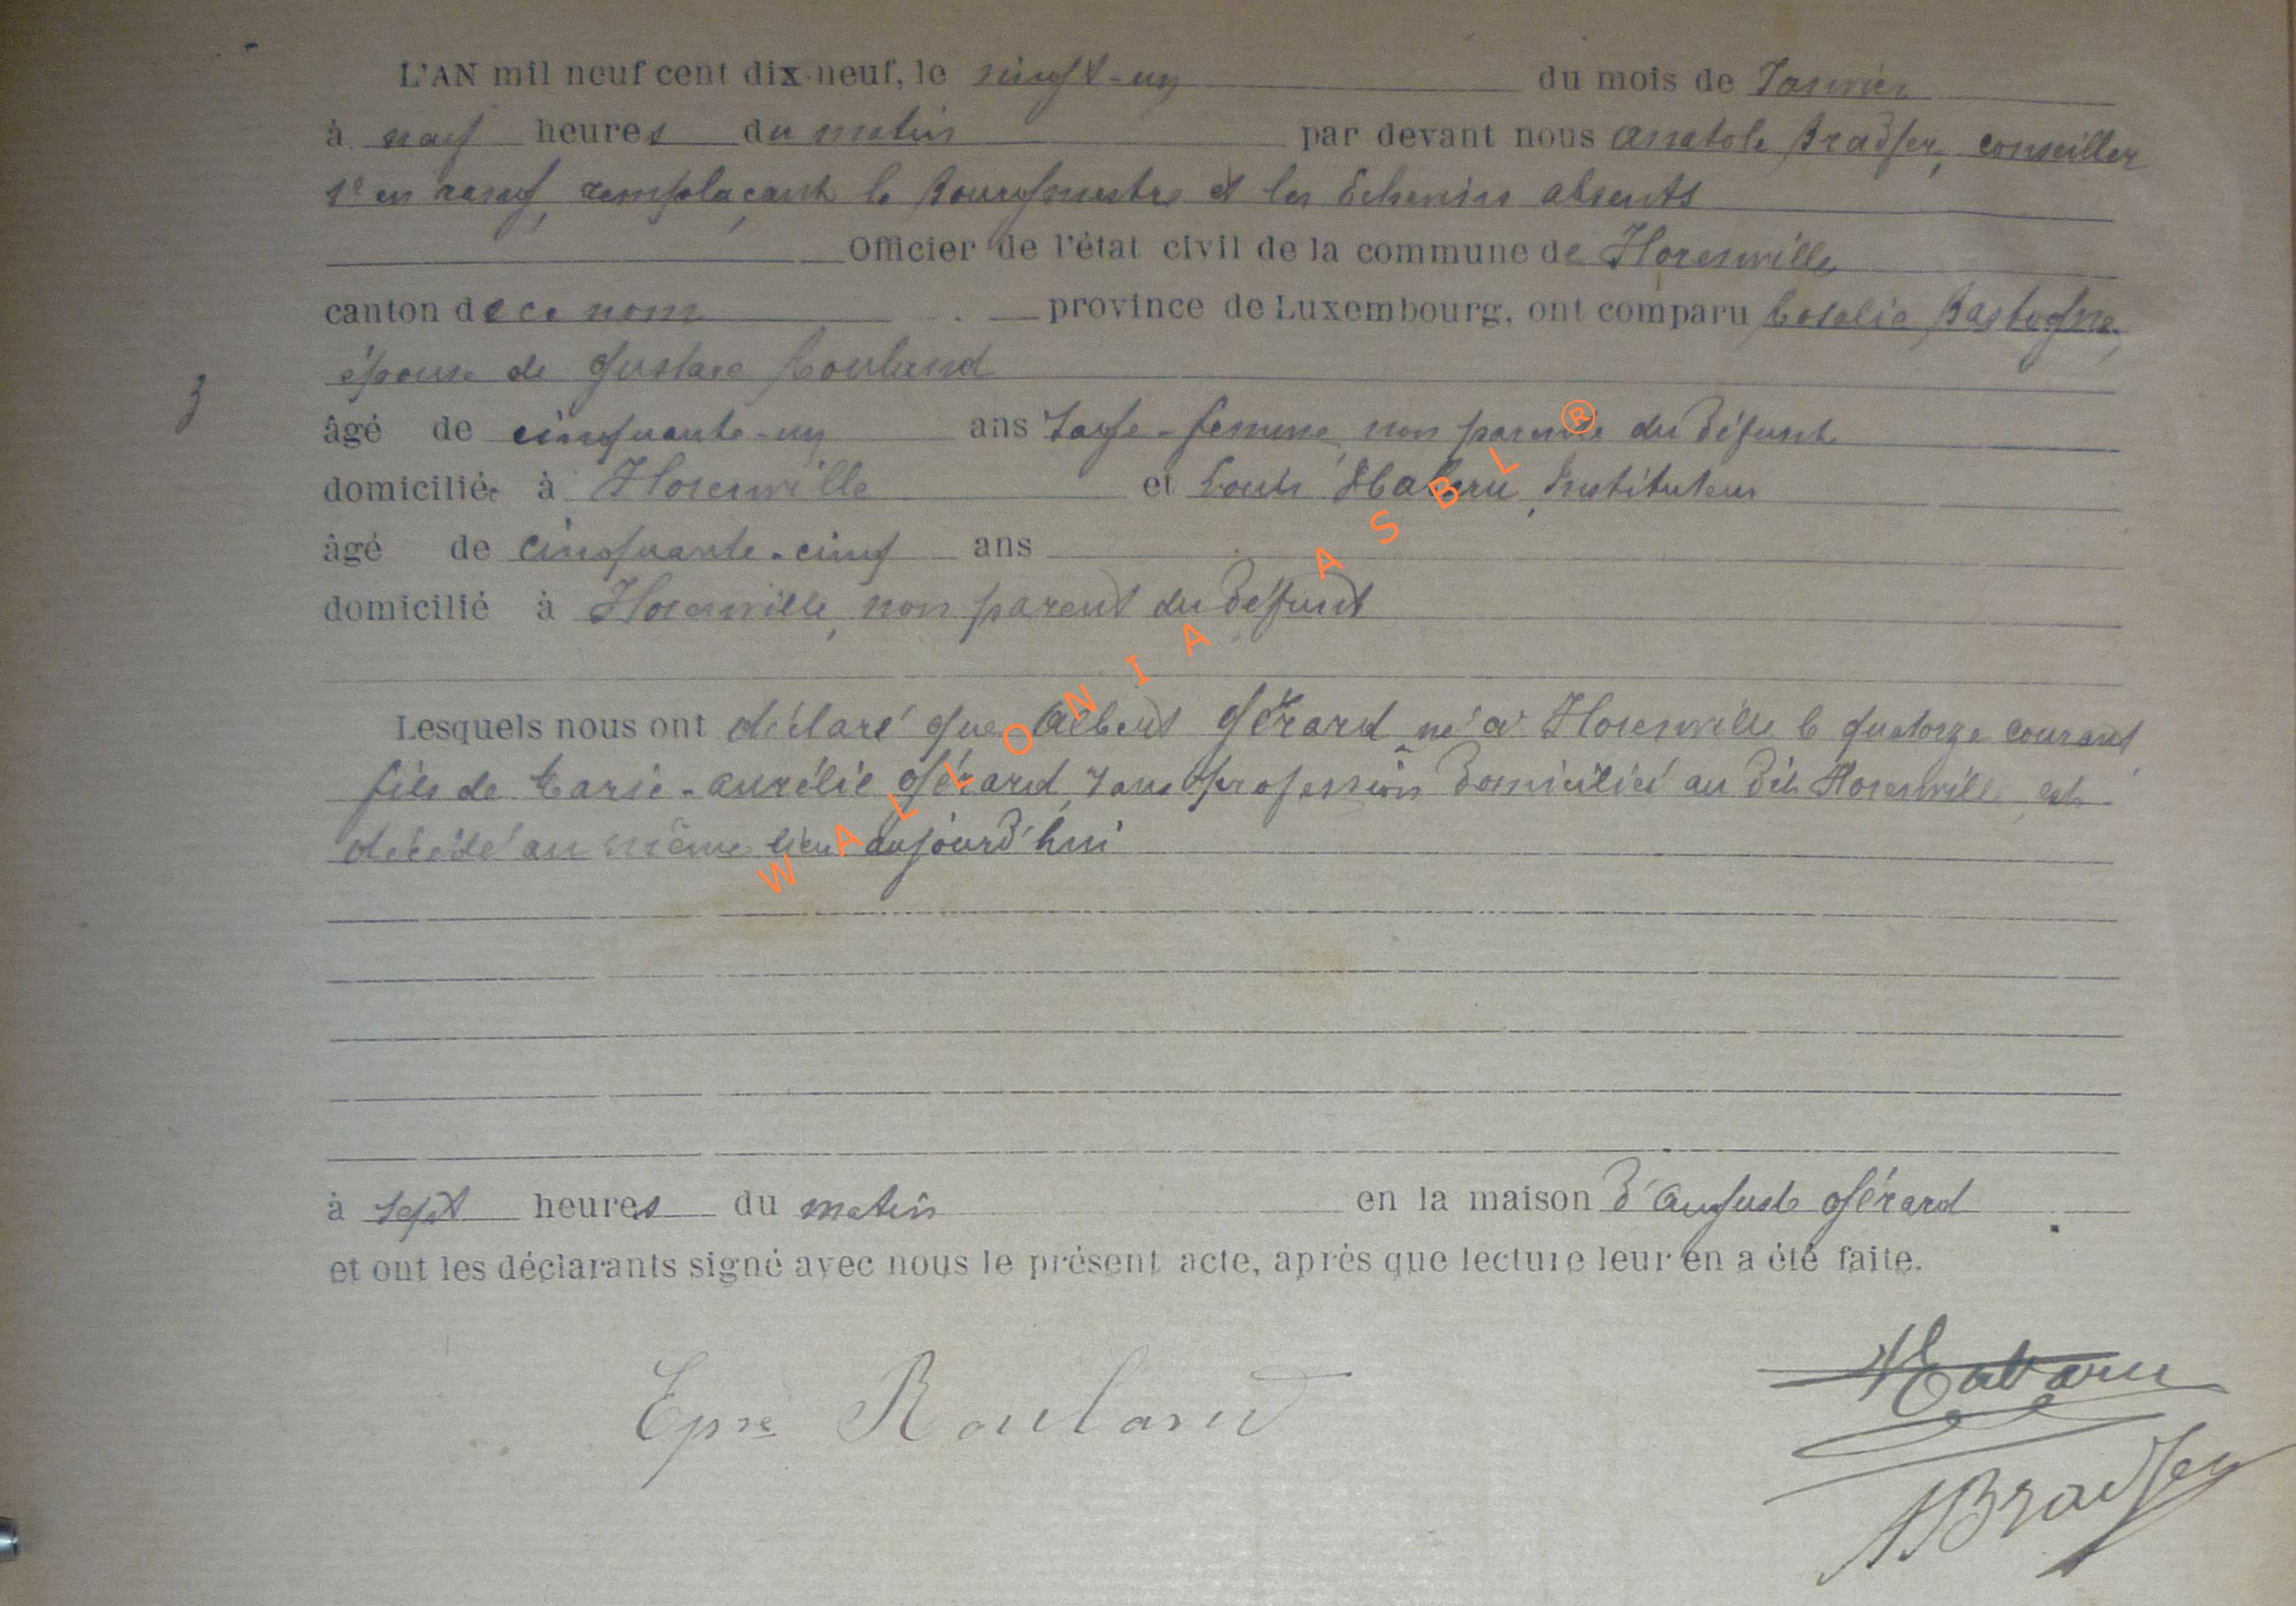 L'AN mil neuf cent dix-neuf, le vingt-un du mois de Janvier
à neuf heures du matin par devant nous Anatole Bradfer, conseiller
1e en rang, remplaçant le Bourgmestre et les Echevins absents
Officier de l'état civil de la commune de Florenville
canton de ce nom province de Luxembourg, ont comparu Rosalie Bastogne,
épouse de Gustave Rouland
3
âgé de cinquante-un ans Sage-femme, non parente du défunt
domiciliée à Florenville et Louis Habaru, Instituteur
âgé de cinquante-cinq ans
domicilié à Florenville, non parent du défunt
Lesquels nous ont déclaré que Albert Gérard, né à Florenville le quatorze courant,
fils de Marie-Aurélie Gérard, sans profession domiciliée au dit Florenville, est
décédé au même lieu aujourd'hui
à sept heures du matin en la maison d'Auguste Gérard
et ont les déclarants signé avec nous le présent acte, après que lecture leur en a été faite.
Epse Rouland
Habaru
ABradfer
WALLONIA ASBL ®